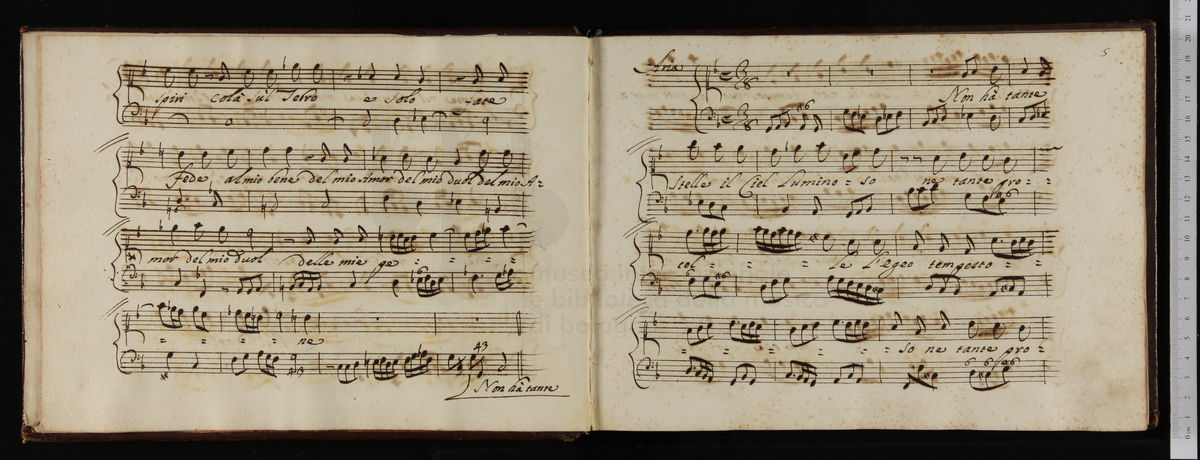 spiri colà sul Tebro e solo fate
Fede al mio bene del mio Amor del mio duol del mio A-
mor del mio duol delle mie pe - - - -
- - - - ne
43
Non hà tante
5
Aria
Non hà tante
Stelle il Ciel Lumino - so ne tante pro -
cel - - - - le l'Egeo tempesto -
- - - - - - so ne tante pro -
museo internazionale
e biblioteca della musica
di bologna